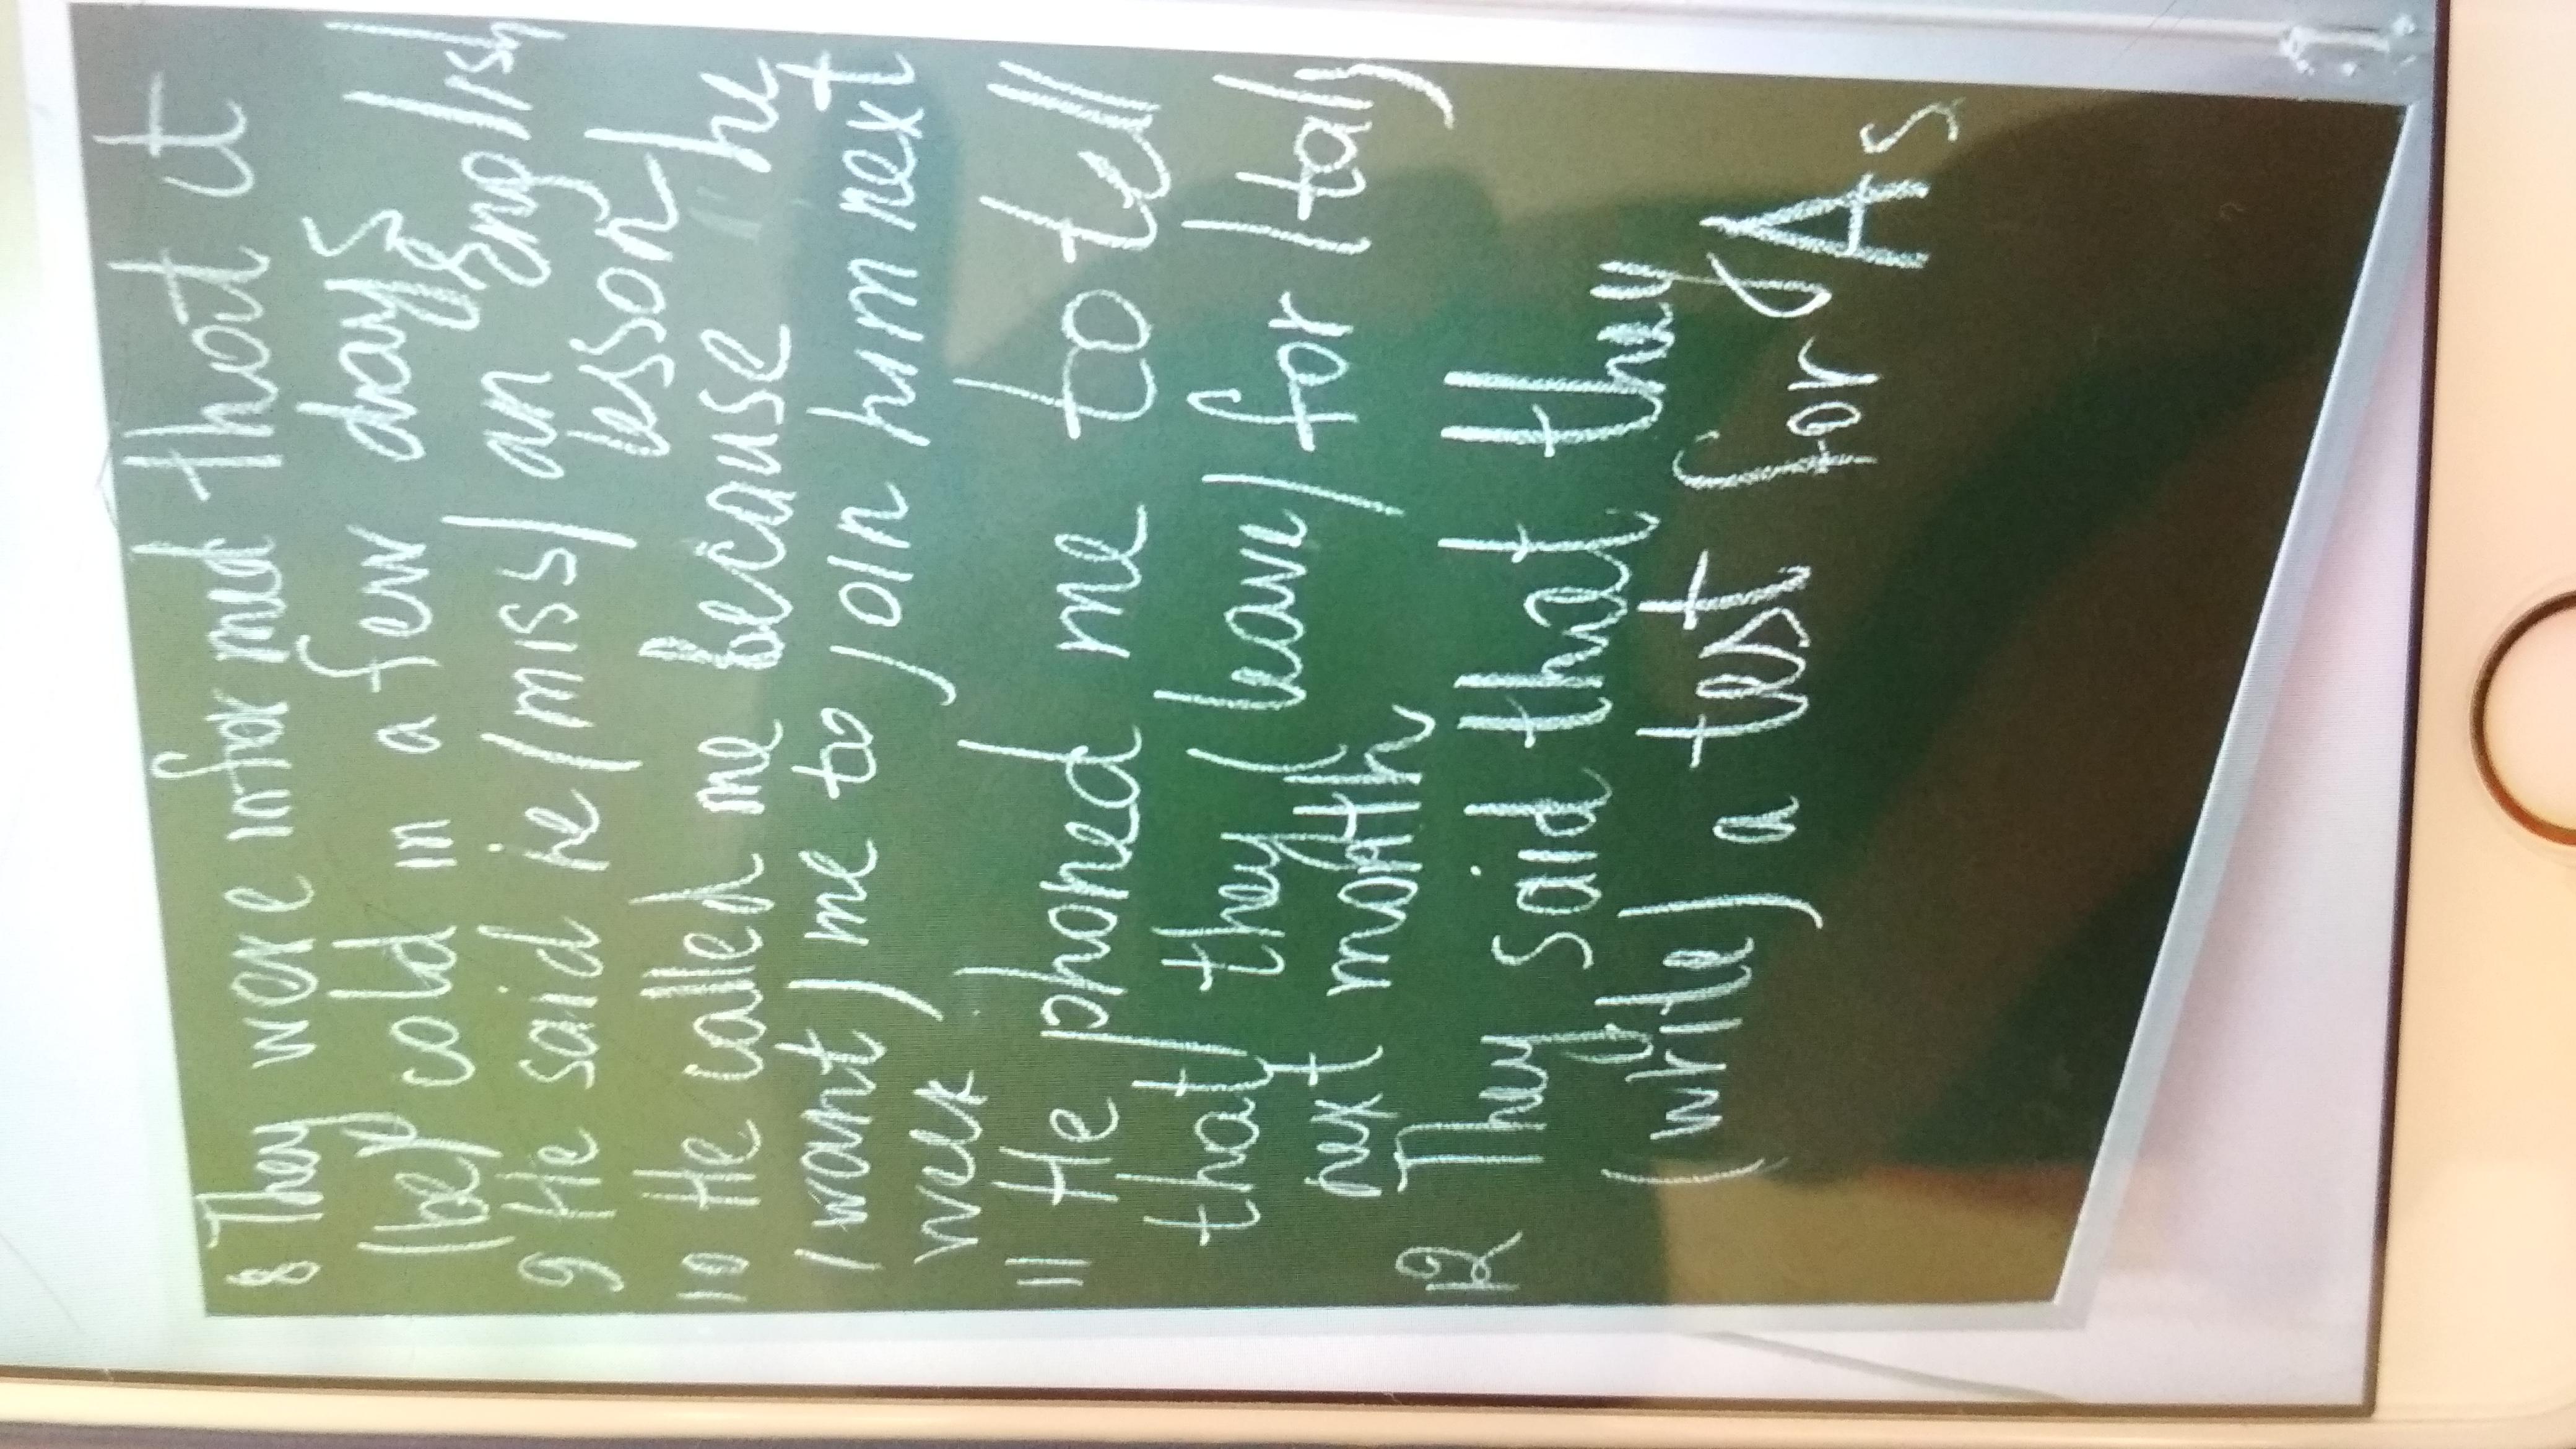 8 They were informed that it
(be) cold in a few days
9 He said he (miss) an English
lesson
10 He called me because he
(want) me to join him next
week
11 He phoned me to tell
that they (leave) for Italy
next month
12 They said that they
(write) a test for